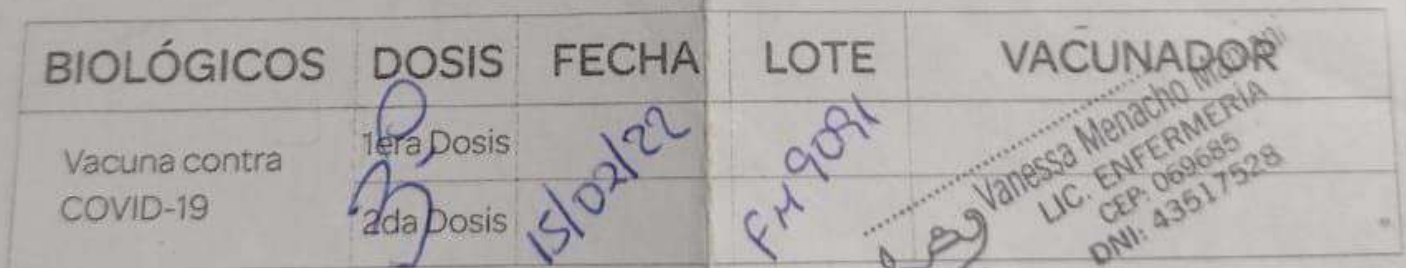 BIOLÓGICOS DOSIS FECHA LOTE VACUNADOR
Vacuna contra
COVID-19
1era Dosis
2da Dosis
15/02/22
FM9091
Vanessa Menacho
LIC. ENFERMERÍA
CEP. 069685
DNI: 43517528